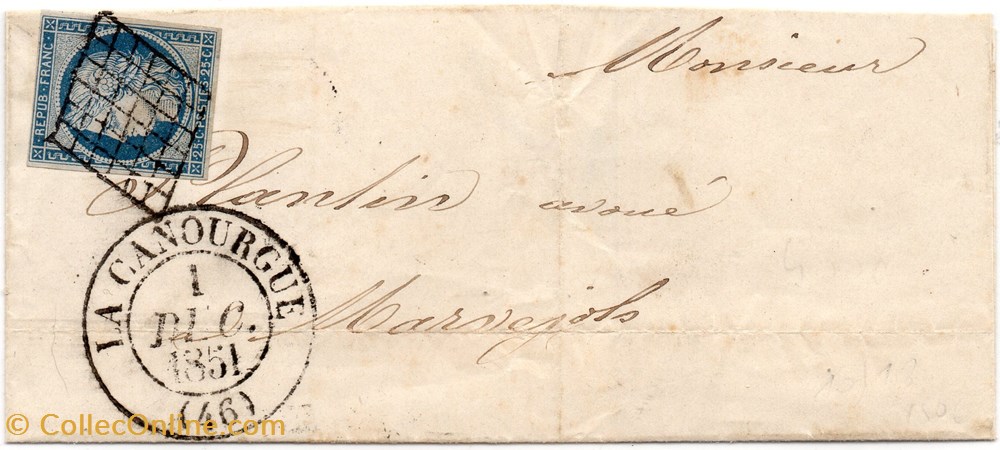 REPUB. FRANC.
25.C POSTES 25.C
Monsieur
Plantin avoué
Marvejols
LA CANOURGUE
1
DEC.
1851
(46)
© CollecOnline.com